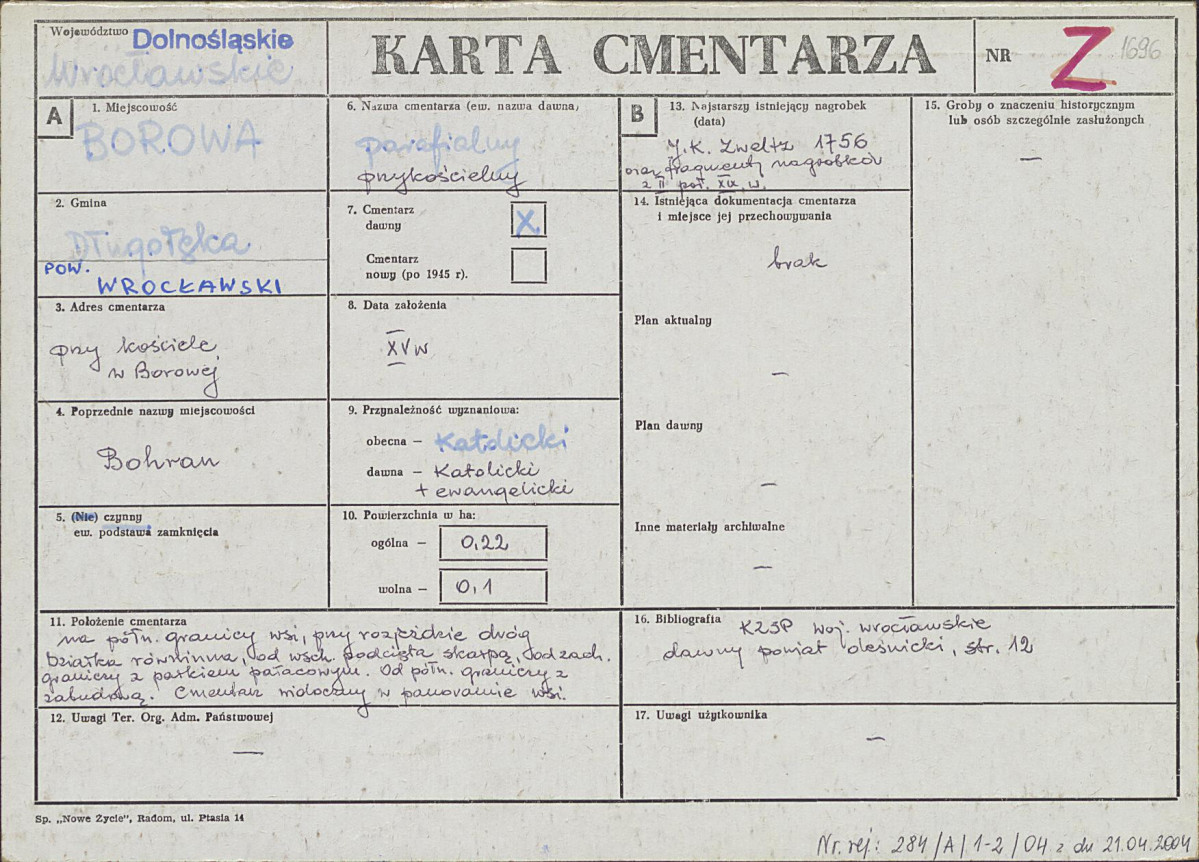 Województwo Dolnośląskie
Wrocławskie
KARTA CMENTARZA
NR Z 1696
A
1. Miejscowość
BOROWA
2. Gmina
Długołęka
POW.
WROCŁAWSKI
3. Adres cmentarza
przy kościele
w Borowej
4. Poprzednie nazwy miejscowości
Bohrau
5. (Nie) czynny
ew. podstawa zamknięcia
6. Nazwa cmentarza (ew. nazwa dawna)
parafialny
przykościelny
7. Cmentarz
dawny X
Cmentarz
nowy (po 1945 r.).
8. Data założenia
XV w
9. Przynależność wyznaniowa:
obecna – Katolicki
dawna – Katolicki
+ ewangelicki
10. Powierzchnia w ha:
ogólna – 0,22
wolna – 0,1
11. Położenie cmentarza
na półn. granicy wsi, przy rozjeździe dróg
Działka równinna, od wsch. podcięta skarpą, od zach.
graniczy z parkiem pałacowym. Od półn. graniczy z
zabudową. Cmentarz widoczny w panoramie wsi.
12. Uwagi Ter. Org. Adm. Państwowej
—
B
13. Najstarszy istniejący nagrobek
(data)
J.K. Zweltz 1756
oraz fragmenty nagrobków
z II poł. XIX w.
14. Istniejąca dokumentacja cmentarza
i miejsce jej przechowywania
brak
Plan aktualny
—
Plan dawny
—
Inne materiały archiwalne
—
15. Groby o znaczeniu historycznym
lub osób szczególnie zasłużonych
—
16. Bibliografia KZSP woj. wrocławskie
dawny powiat oleśnicki, str. 12
17. Uwagi użytkownika
—
Sp. „Nowe Życie", Radom, ul. Ptasia 14
Nr. rej: 284/A/1-2/04 z dn 21.04.2004